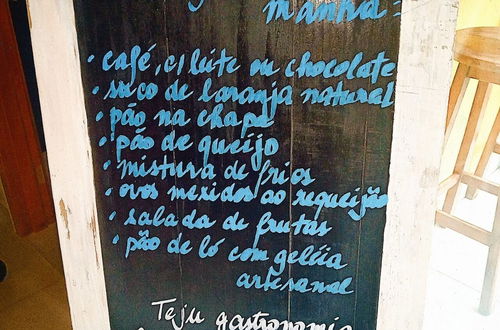 manhã:
• café, c/ leite ou chocolate
• suco de laranja natural
• pão na chapa
• pão de queijo
• mistura de frios
• ovos mexidos ao requeijão
• salada de frutas
• pão de ló com geléia
artesanal
Teju gastronomia